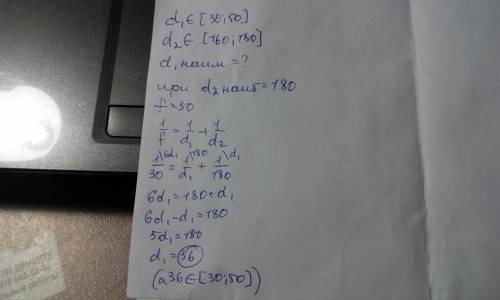 d₁ ∈ [30;50]
d₂ ∈ [160;180]
d₁ наим = ?
при d₂ наиб = 180
f = 30
1/f = 1/d₁ + 1/d₂
1\6d₁/30 = 1\180/d₁ + 1\d₁/180
6d₁ = 180 + d₁
6d₁ - d₁ = 180
5d₁ = 180
d₁ = 36
(а 36 ∈ [30;50])